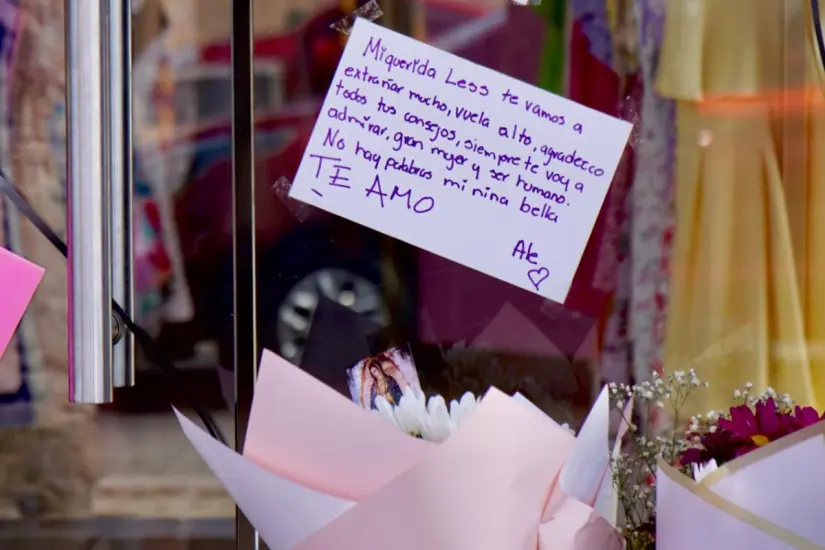 Mi querida Less te vamos a
extrañar mucho, vuela alto, agradezco
todos tus consejos, siempre te voy a
admirar, gran mujer y ser humano.
No hay palabras mi niña bella
TE AMO
Ale